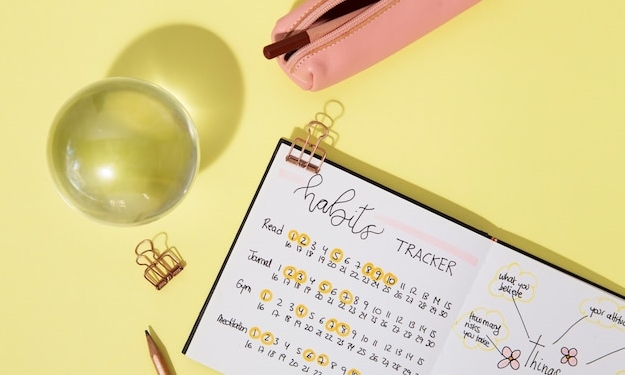 habits
TRACKER
Read 1 2 3 4 5 6 7 8 9 10 11 12 13 14 15
16 17 18 19 20 21 22 23 24 25 26 27 28 29 30
Journal 1 2 3 4 5 6 7 8 9 10 11 12 13 14 15
16 17 18 19 20 21 22 23 24 25 26 27 28 29 30
Gym 1 2 3 4 5 6 7 8 9 10 11 12 13 14 15
16 17 18 19 20 21 22 23 24 25 26 27 28 29 30
Meditation 1 2 3 4 5 6 7 8 9
16 17 18 19 20 21 22
what you
believe
How many
risks
you take
your
Things